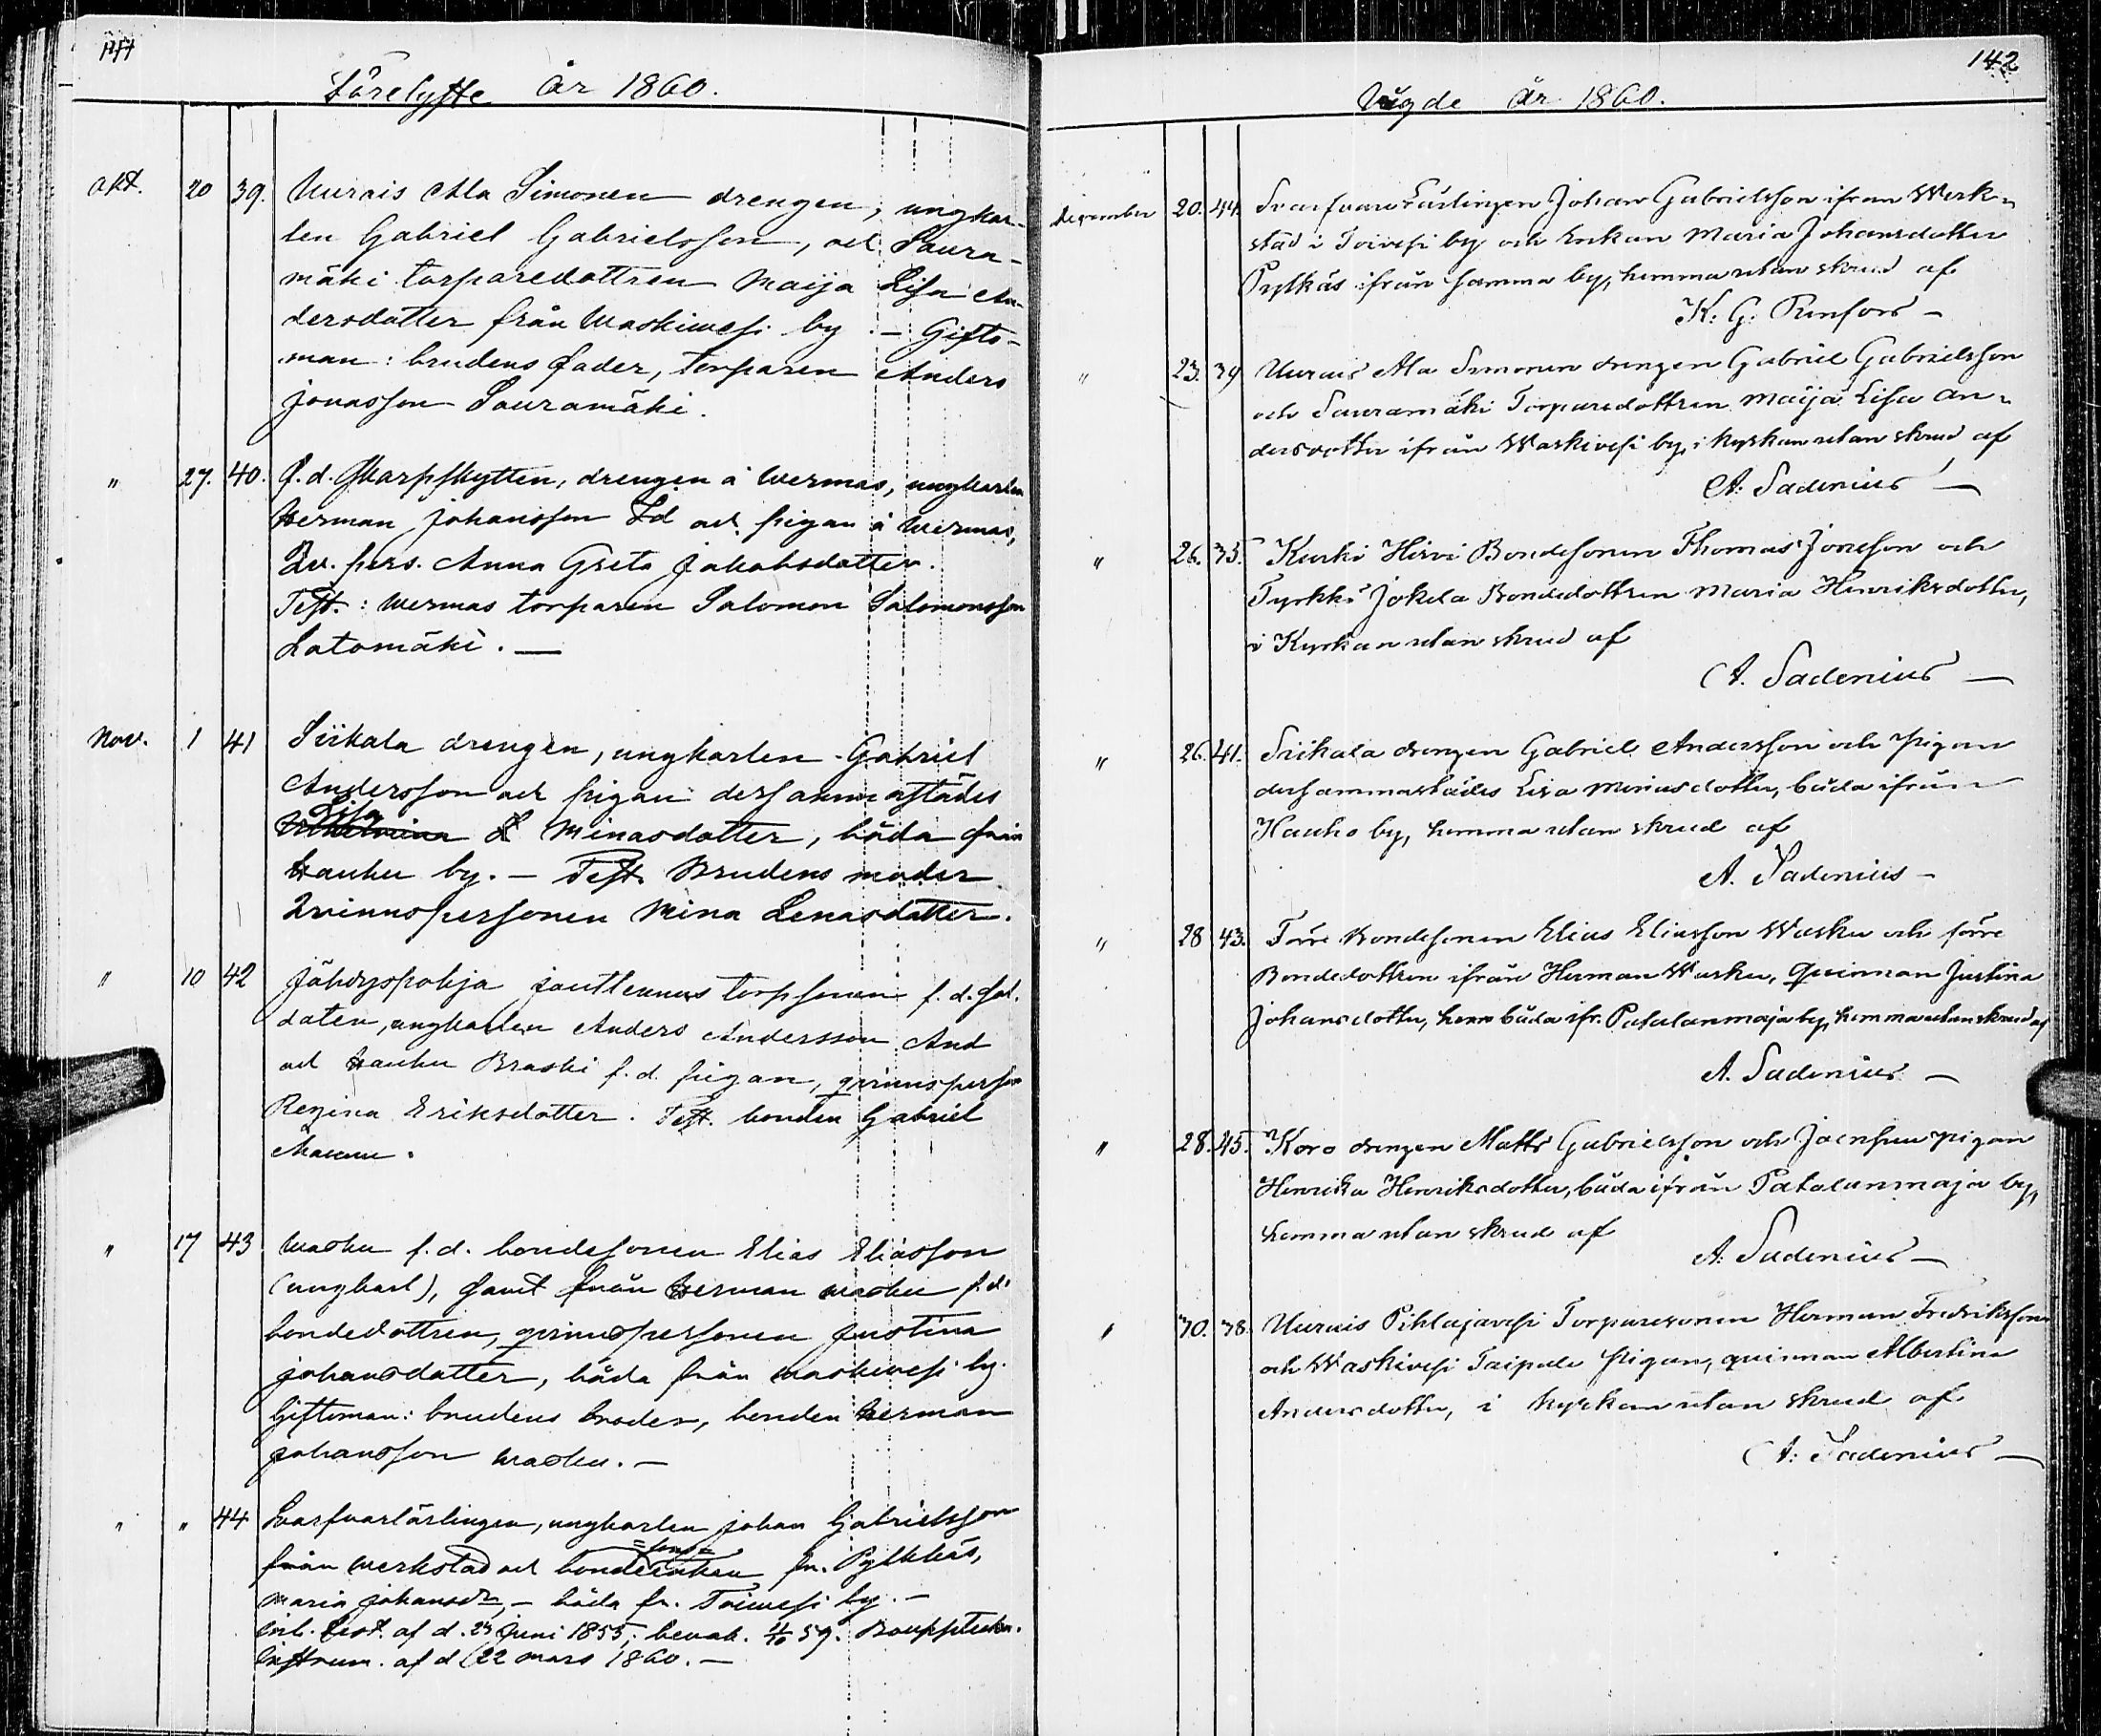 141
Lårelyste År 1860.
Okt. 20 39. Uurais Ala Simonen drengen, ungkar-
len Gabriel Gabrielsson, och Saura-
mäki torparedottren Maija Lisa An-
dersdotter från Waskiwesi by. – Gifto-
man: brudens fader, torparen Anders
Jonasson Sauramäki.
" 27. 40. F. d. Skarpskytten, drengen å Wermas, ungkarlen
Herman Johansson Ld och pigan å Wermas,
Qv. pers. Anna Greta Jakobsdotter.
Test.: Wermas torparen Salomon Salomonsson
Latomäki. —
Nov. 1 41 Siikala drengen, ungkarlen Gabriel
Andersson och pigan dersammastädes
Lisa
Wilhelmina Minasdotter, båda från
Hauhu by. – Test. Brudens moder
Qvinnspersonen Mina Lenasdotter.
" 10 42 torpsonen f. d. Sol-
daten, ungkarlen Anders Andersson And
och Hauhu Braski f. d. pigan, qvinnsperson
Regina Eriksdotter. Test. bonden Gabriel
" 17 43 Wasku f. d. bondesonen Elias Eliasson
(ungkarl), samt från Herman Wasku f. d.
bondedottren, qvinnspersonen Justina
Johansdotter, båda från Waskiwesi by.
Giftoman: brudens broder, bonden Herman
Johansson Wasku. —
" " 44 Svarfvarlärlingen, ungkarlen Johan Gabrielsson
=sons=
från Werkstad och bondeenkan fr. Pylkkäs,
Maria Johansdr, – båda fr. Toiwesi by. –
af d. 23 Juni 1855; bevak. 11/10 59. Bouppteckn.
Instrum. af d 22 Mars 1860. —
142
Vigde År 1860.
December 20. 44. Svarfvare Lärlingen Johan Gabrielsson ifrån Werk-
stad i Toivesi by och Enkan Maria Johansdotter
Pylkäs ifrån samma by, hemma utan skrud af
K. G. Renfors –
" 23. 39 Uurais Ala Simonen drengen Gabriel Gabrielsson
och Sauramäki Torparedottren Maija Lisa An-
dersdotter ifrån Waskivesi by, i kyrkan utan skrud af
A. Sadenius —
" 26. 35. Kurki Hirvi Bondesonen Thomas Jonesson och
Tyrkkö Jokela Bondedottren Maria Henriksdotter,
i Kyrkan utan skrud af
A. Sadenius —
" 26. 41. Siikala drengen Gabriel Andersson och pigan
dersammastädes Lisa Minasdotter, båda ifrån
Hauho by, hemma utan skrud af
A. Sadenius –
" 28 43. Förre Bondesonen Elias Eliasson Wasku och förre
Bondedottren ifrån Herman Wasku, Quinnan Justina
Johansdotter, båda ifr. Patalanmaja by, hemma utan skrud af
A. Sadenius —
" 28. 45. Koro drengen Matts Gabrielsson och pigan
Henrika Henriksdotter, båda ifrån Patalanmaja by,
hemma utan skrud af
A. Sadenius —
" 30. 38. Uurais Pihlajavesi Torparesonen Herman Fredriksson
och Waskivesi Taipale pigan, quinnan Albertina
Andersdotter, i kyrkan utan skrud af
A. Sadenius —